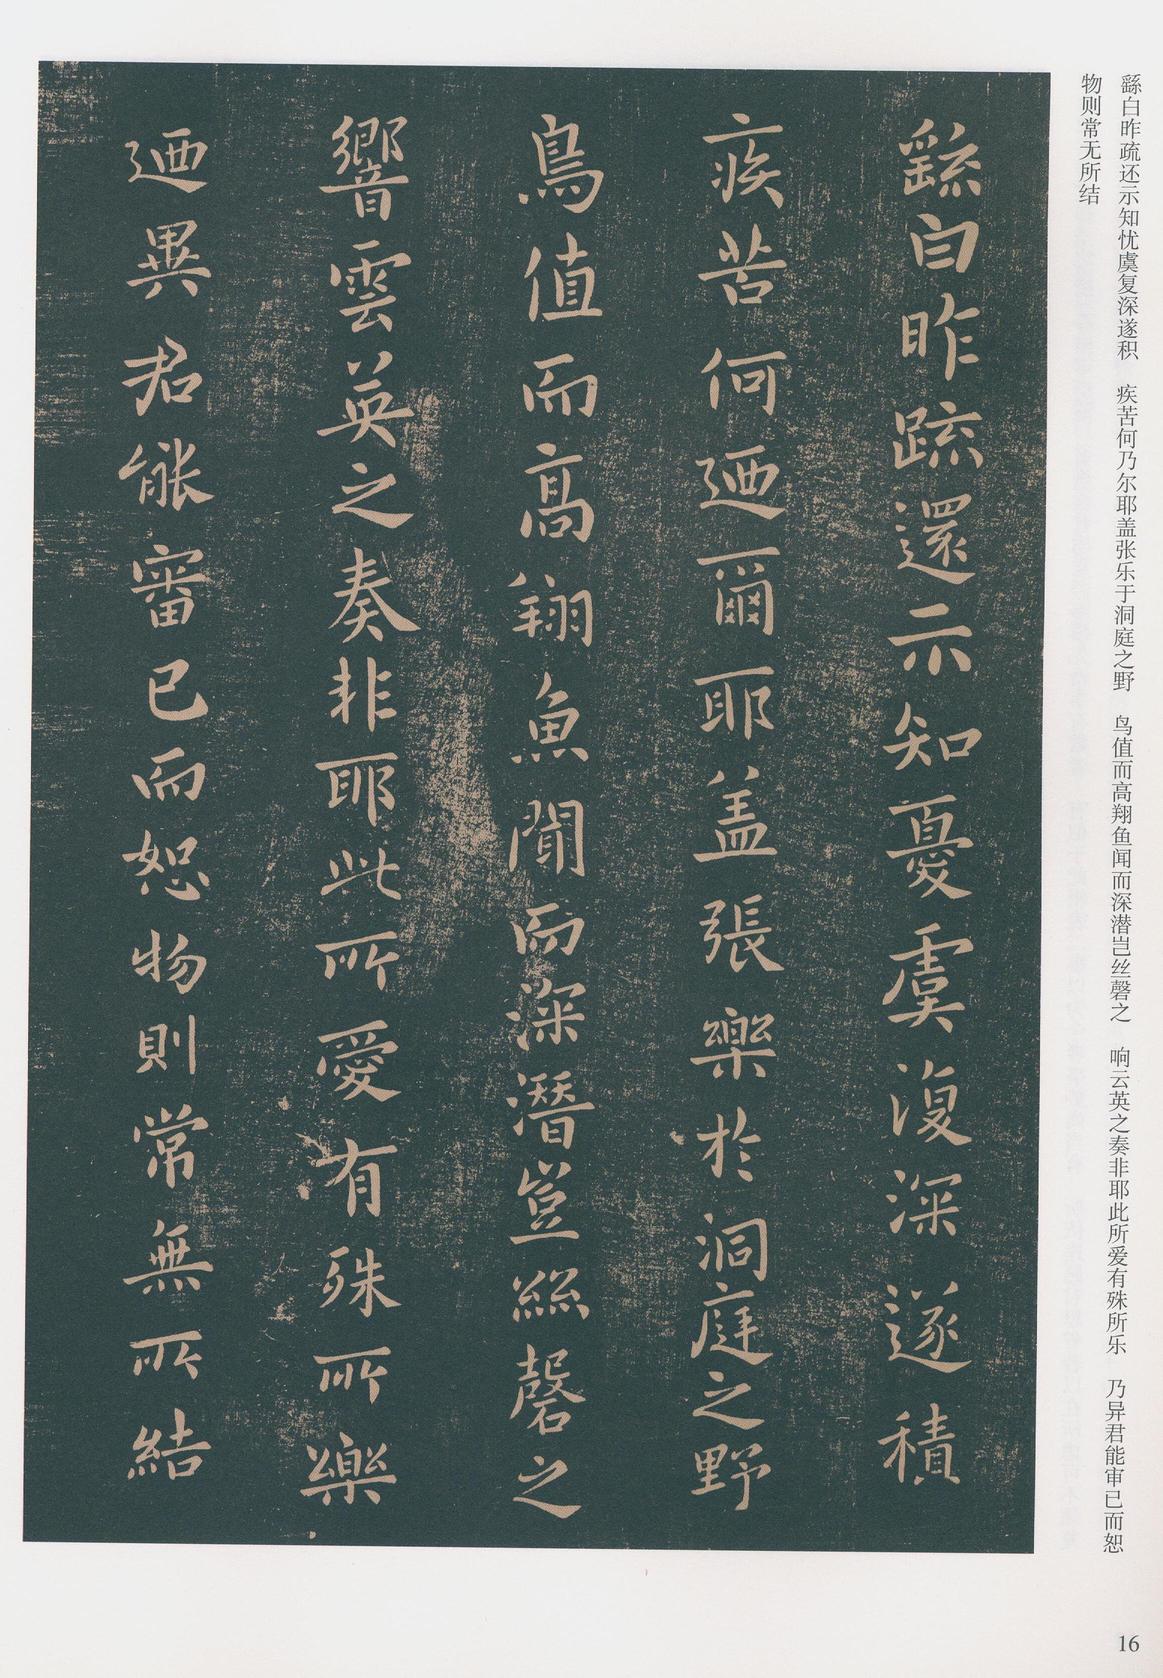 繇白昨疏还示知忧虞复深遂积　疾苦何乃尔耶盖张乐于洞庭之野　鸟值而高翔鱼闻而深潜岂丝磬之　响云英之奏非耶此所爱有殊所乐　乃异君能审已而恕
物则常无所结
繇白昨疏還示知憂虞復深遂積
疾苦何迺爾耶盖張樂於洞庭之野
鳥值而高翔魚聞而深潛豈絲磬之
響雲英之奏非耶此所愛有殊所樂
迺異君能審已而恕物則常無所結
16